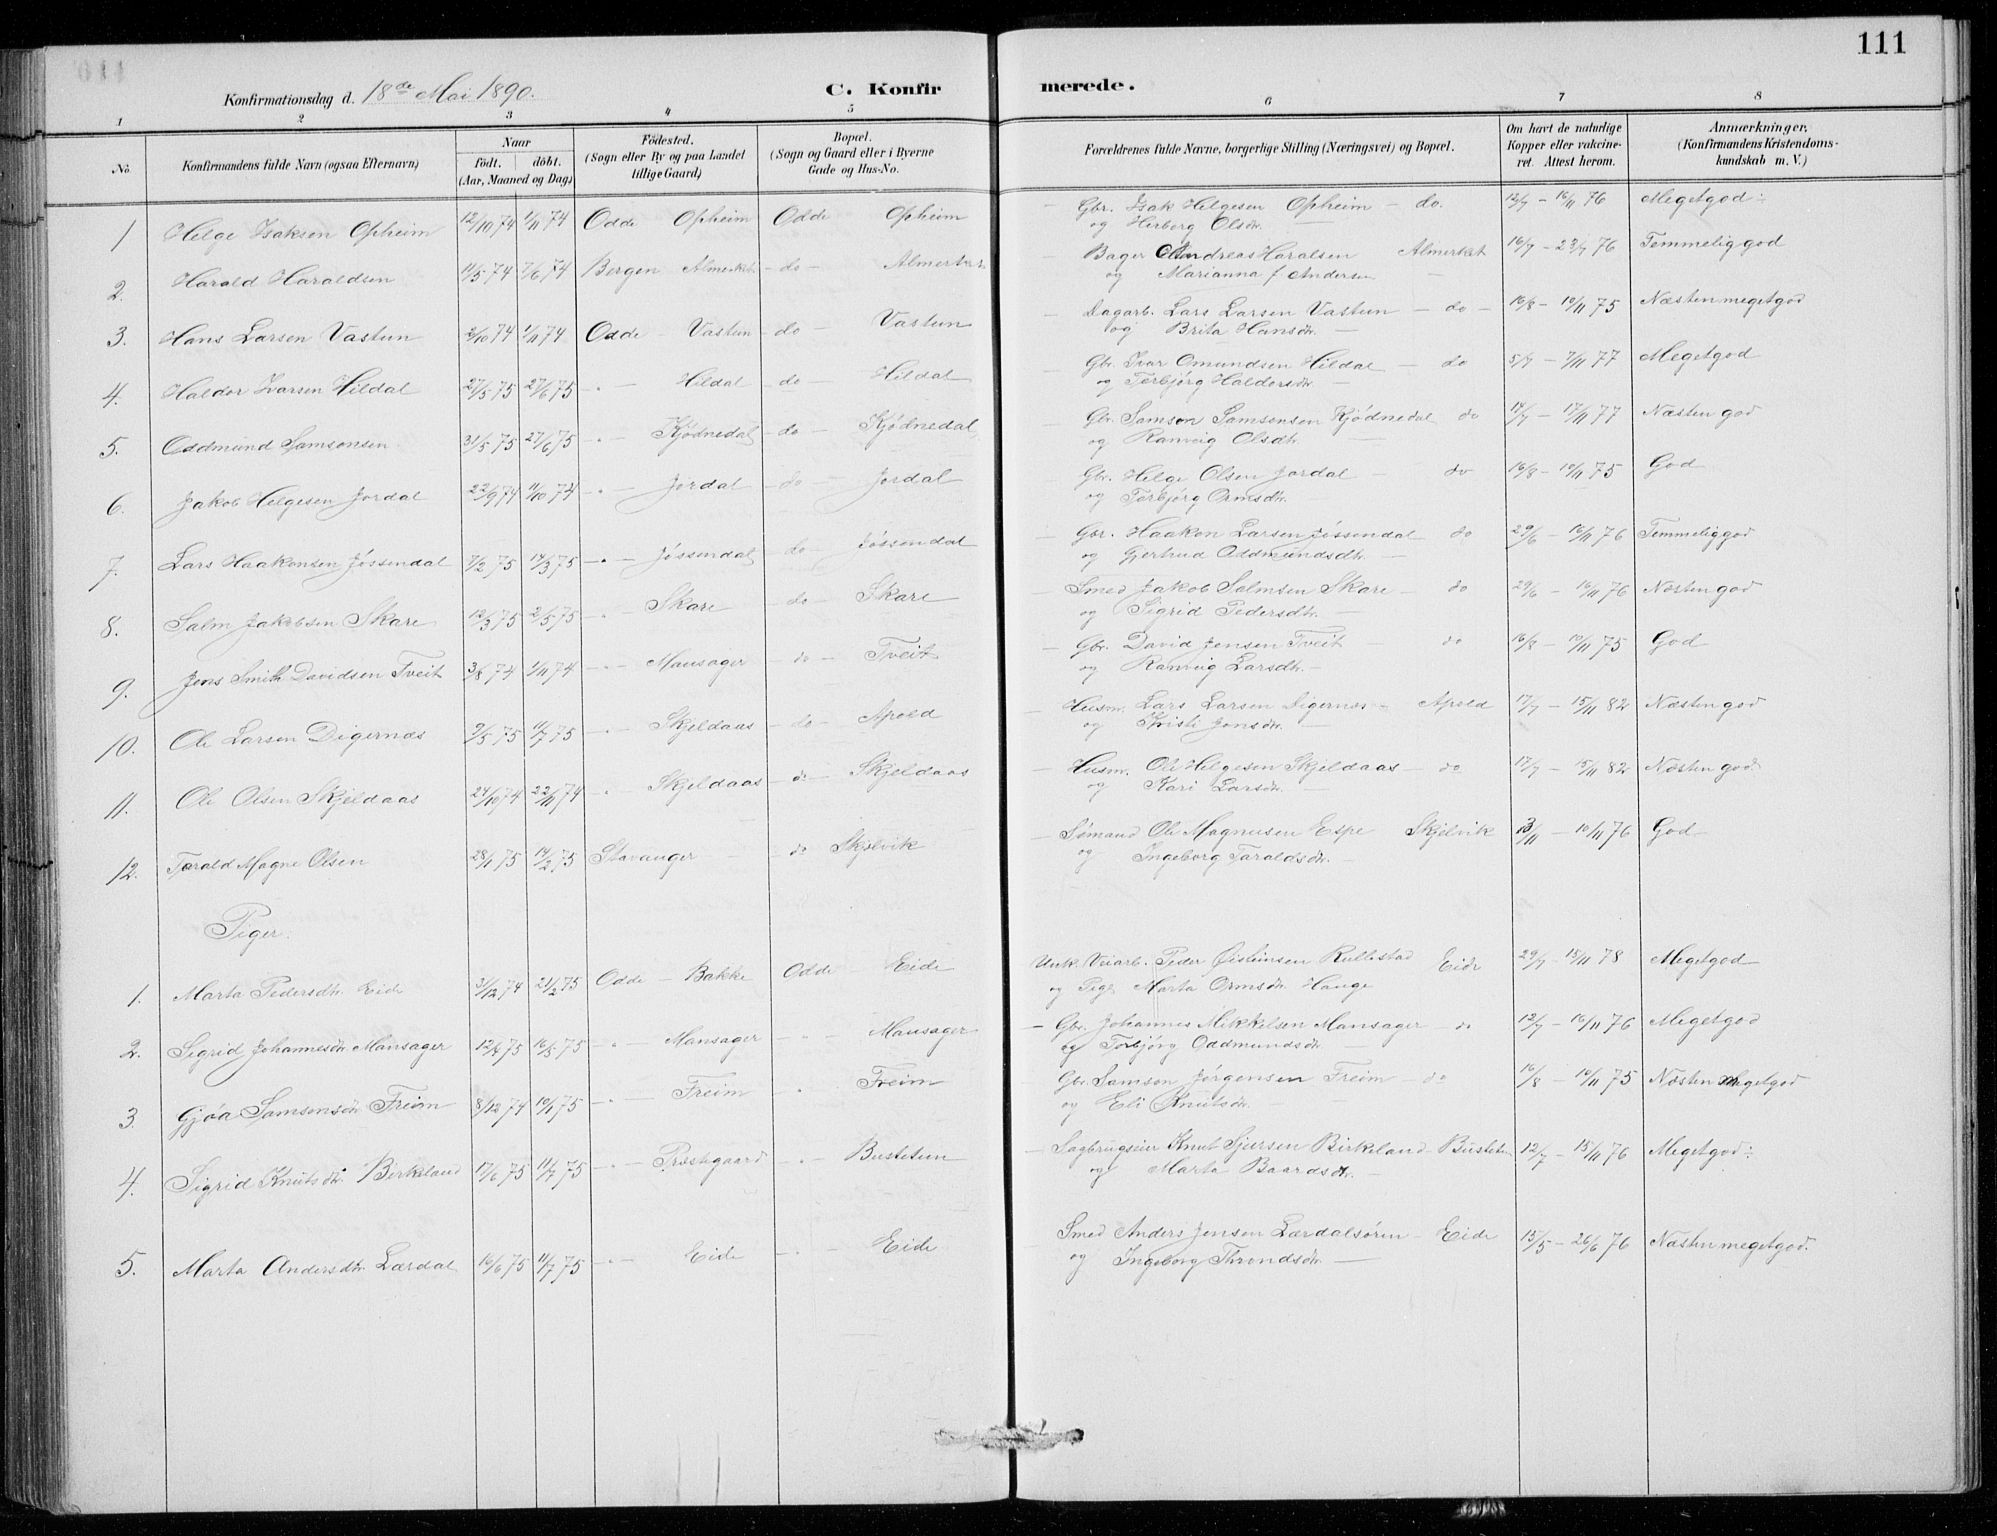 111
Konfirmationsdag d. 18de Mai 1890.
C. Konfir merede.
1 2 3 4 5 6 7 8
No. Konfirmandens fulde Navn (ogsaa Efternavn) Naar født. døbt. (Aar, Maaned og Dag) Fødested. (Sogn eller By og paa Landet tillige Gaard) Bopæl. (Sogn og Gaard eller i Byerne Gade og Hus-No. Forældrenes fulde Navne, borgerlige Stilling (Næringsvei) og Bopæl. Om havt de naturlige Kopper eller vakcineret. Attest herom. Anmærkninger. (Konfirmandens Kristendomskundskab m. V.)
1 Helge Isaksen Opheim 12/10 74 1/11 74 Odde Opheim Odde Opheim — Gbr. Isak Helgesen Opheim — do. 12/7 — 16/11 76 Megetgod
og Herborg Olsdtr.
2. Harald Haraldsen 11/5 74 7/6 74 Bergen Almerket — do — Almerket Bager Andreas Haralsen Almerket 16/7 — 23/7 76 Temmelig god
og Marianna f. Andersen —
3. Hans Larsen Vastun 2/10 74 1/11 74 Odde Vastun — do — Vastun — Dagarb. Lars Larsen Vastun — do — 16/8 — 10/11 75 Næsten megetgod
og Brita Hansdtr. —
4. Haldor Ivarsen Hildal 27/5 75 27/6 75 — " — Hildal — do — Hildal Gbr. Ivar Omundsen Hildal — do 5/7 — 7/11 77 Megetgod
og Torbjørg Haldorsdtr. —
5. Oddmund Samsonsen 31/5 75 27/6 75 — " — Kjødnedal — do — Kjødnedal Gbr. Samson Samsonsen Kjødnedal do 14/7 — 17/11 77 Næsten god
og Ranveig Olsdtr. —
6. Jakob Helgesen Jordal 22/9 74 11/10 74 — " — Jordal — do — Jordal Gbr. Helge Olsen Jordal — do 16/8 — 10/11 75 God
og Torbjørg Ormsdtr. —
7. Lars Haakonsen Jøssendal 7/2 75 14/3 75 — " — Jøssendal — do — Jøssendal — Gbr. Haakon Larsen Jøssendal do 29/6 — 16/11 76 Temmelig god
og Gjertrud Oddmundsdtr. —
8. Salm Jakobsen Skare 12/3 75 2/5 75 — " Skare — do — Skare — Smed Jakob Salmsen Skare — do 29/6 — 16/11 76 Næsten god
og Sigrid Pedersdtr. —
9. Jens Smith Davidsen Tveit 3/8 74 1/11 74 — " — Mansager — do — Tveit — Gbr. David Jensen Tveit — do 16/8 — 10/11 75 God
og Ranveig Larsdtr. —
10. Ole Larsen Digernæs 9/5 75 11/7 75 — " — Skjeldaas — do — Apold — Husm. Lars Larsen Digernæs — Apold 17/7 — 15/11 82 Næsten god
og Kristi Jonsdtr. —
11. Ole Olsen Skjeldaas 24/10 74 22/11 74 — " — Skjeldaas — do — Skjeldaas — Husm. Ole Helgesen Skjeldaas — do 17/7 — 15/11 82 Næsten god
og Kari Larsdtr. —
12. Tarald Magne Olsen 28/1 75 14/2 75 Stavanger — do Skjelvik — Sømand Ole Magnusen Espe Skjelvik 3/11 — 10/11 76 God
og Ingeborg Taraldsdtr. —
Piger.
1. Marta Pedersdtr. Eide 31/12 74 21/2 75 Odde — Bakke Odde — Eide Unk. Veiarb. Peder Øisteinsen Rullestad Eide 29/7 — 15/11 78 Megetgod
og Pige Marta Ormsdtr. Hauge
2. Sigrid Johannesdtr. Mansager 12/4 75 16/5 75 — " — Mansager — " — Mansager — Gbr. Johannes Mikkelsen Mansager — do 12/7 — 16/11 76 Megetgod
og Torbjørg Oddmundsdtr. —
3. Gjøa Samsonsdtr. Freim 8/12 74 10/1 75 — " — Freim " — Freim Gbr. Samson Jørgensen Freim — do 16/8 — 10/11 75 Næsten megetgod
og Eli Knutsdtr. —
4. Sigrid Knutsdtr. Birkeland 17/6 75 11/7 75 — " — Præstegaard — " — Bustetun — Sagbrugseier Knut Sjursen Birkeland Bustetun 12/7 — 15/11 76 Megetgod
og Marta Baardsdtr. —
5. Marta Andersdtr. Lærdal 16/6 75 11/7 75 — " — Eide — " — Eide Smed Anders Jensen Lærdalsøren — Eide 15/5 — 26/6 76 Næsten megetgod.
og Ingeborg Throndsdtr. —